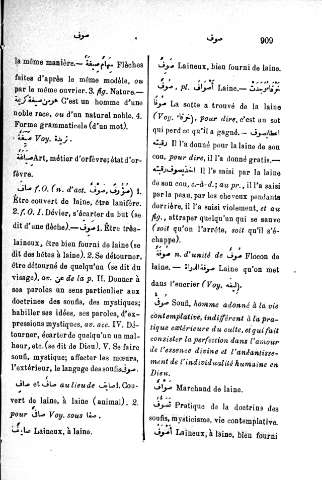 صوف
صوف
909
la même manière.— سِهَامٌ صِيغَةٌ Flèches
faites d'après le même modèle, ou
par le même ouvrier. 3. fig. Nature.—
هو من صيغة كريمة C'est un homme d'une
noble race, ou d'un naturel noble. 4.
Forme grammaticale (d'un mot).
Voy.
صِيَاغَةٌ Art, métier d'orfèvre; état d'or-
fèvre.
صاف f. O. (n. d'act. صَوْفٌ, صُوُوفٌ) 1.
Être couvert de laine, être lanifère.
2. f. O. I. Dévier, s'écarter du but (se
dit d'une flèche).— صَوِفَ 1. Être très-
laineux, être bien fourni de laine (se
dit des bêtes à laine). 2. Se détourner,
être détourné de quelqu'un (se dit du
visage), av. عن de la p. II. Donner à
ses paroles un sens particulier aux
doctrines des soufis, des mystiques;
habiller ses idées, ses paroles, d'ex-
pressions mystiques, av. acc. IV. Dé-
tourner, écarter de quelqu'un un mal-
heur, etc. (se dit de Dieu). V. Se faire
soufi, mystique; affecter les mœurs,
l'extérieur, le langage des soufis صوفى.
صافٌ et صافٍ au lieu de صائف 1. Cou-
vert de laine, à laine (animal). 2.
pour صافى Voy. sous صفا.
صايفٌ Laineux, à laine.
صَوِفٌ Laineux, bien fourni de laine.
صُوفٌ, pl. أَصْوَافٌ Laine.—
صوفا La sotte a trouvé de la laine
(Voy. خرقاء), pour dire, c'est un sot
qui perd ce qu'il a gagné.—
Il l'a donné pour la laine de son
cou, pour dire, il l'a donné gratis.—
Il l'a saisi par la laine
de son cou, c.-à-d.; au pr., il l'a saisi
par la peau, par les cheveux pendants
derrière, il l'a saisi violemment, et au
fig., attraper quelqu'un qui se sauve
(soit qu'on l'arrête, soit qu'il s'é-
chappe).
صُوفَةٌ n. d'unité de صُوفٌ Flocon de
laine.— صوفة الدواة Laine qu'on met
dans l'encrier (Voy. لِيقَة).
صُوفِىٌّ Soufi, homme adonné à la vie
contemplative, indifférent à la pra-
tique extérieure du culte, et qui fait
consister la perfection dans l'amour
de l'essence divine et l'anéantisse-
ment de l'individualité humaine en
Dieu.
صَوَّافٌ Marchand de laine.
تَصَوُّفٌ Pratique de la doctrine des
soufis, mysticisme, vie contemplative.
أَصْوَفُ Laineux, à laine, bien fourni